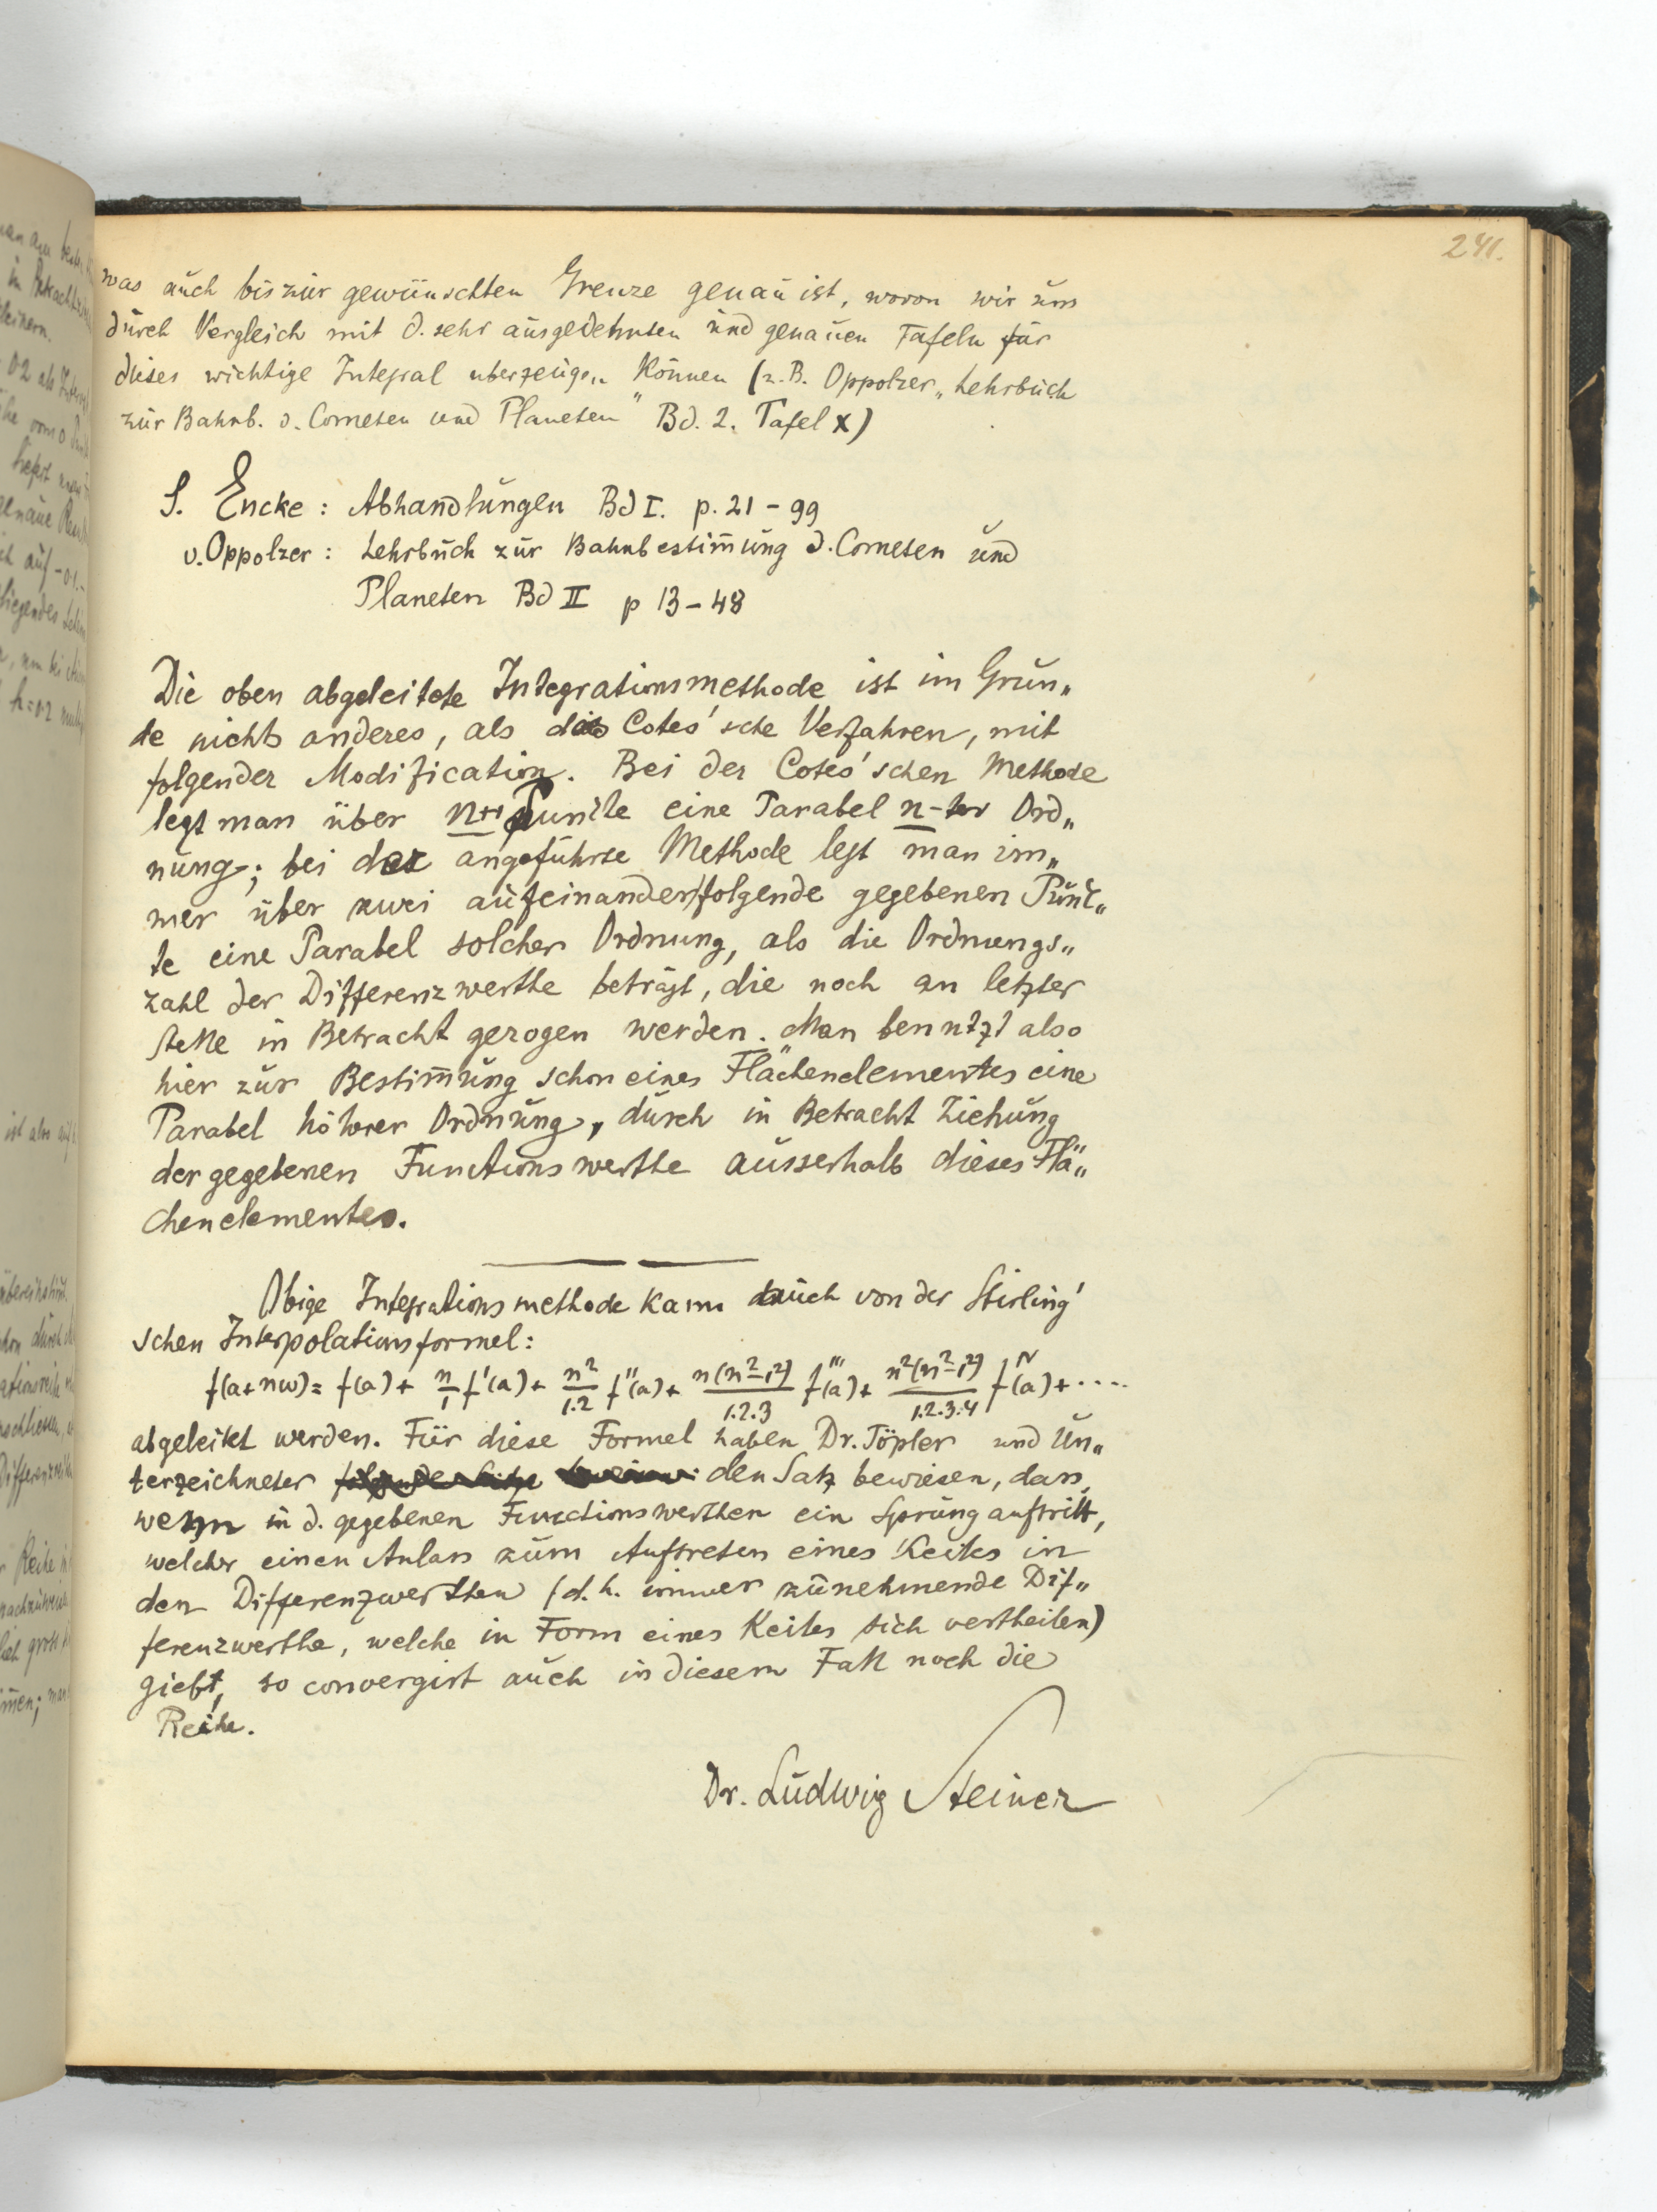 241.
was auch bis zur gewünschten Grenze genau ist, wovon wir uns
durch Vergleich mit d. sehr ausgedehnten und genauen Tafeln für
dieses wichtige Integral uberzeugen können (z. B. Oppolzer „Lehrbuch
zur Bahnb. d. Cometen und Planeten" Bd. 2. Tafel X)
S. Encke: Abhandlungen Bd I. p. 21 – 99
v. Oppolzer: Lehrbuch zur Bahnbestim̄ung d. Cometen und
Planeten Bd II p 13 – 48
Die oben abgeleitete Integrationsmethode ist im Grun„
de nichts anderes, als das Cotes'sche Verfahren, mit
folgender Modification. Bei der Cotes'schen Methode
legt man über n+1 Puncte eine Parabel n-ter Ord„
nung; bei der angeführte Methode legt man im„
mer über zwei aufeinanderfolgende gegebenen Punc„
te eine Parabel solcher Ordnung, als die Ordnungs„
zahl der Differenzwerthe beträgt, die noch an letzter
stelle in Betracht gezogen werden. Man benntzt also
hier zur Bestim̄ung schon eines Flächenelementes eine
Parabel höhrer Ordnung, durch in Betracht Ziehung
der gegebenen Functionswerthe ausserhalb dieses Flä„
chenelementes.
Obige Integrationsmethode kann auch von der Stirling'
schen Interpolationsformel:
f(a+nω) = f(a) + n/1 f'(a) + n²/1.2 f''(a) + n(n²–1²)/1.2.3 f'''(a) + n²(n²–1²)/1.2.3.4 f^IV(a) + ....
abgeleitet werden. Für diese Formel haben Dr. Töpler und Un„
terzeichneter den Satz bewiesen, dass,
wenn in d. gegebenen Functionswerthen ein Sprung auftritt,
welcher einen Anlass zum Auftreten eines Keiles in
den Differenzwerthen (d. h. immer zunehmende Dif„
ferenzwerthe, welche in Form eines Keiles sich vertheilen)
giebt, so convergirt auch in diesem Fall noch die
Reihe.
Dr. Ludwig Steiner